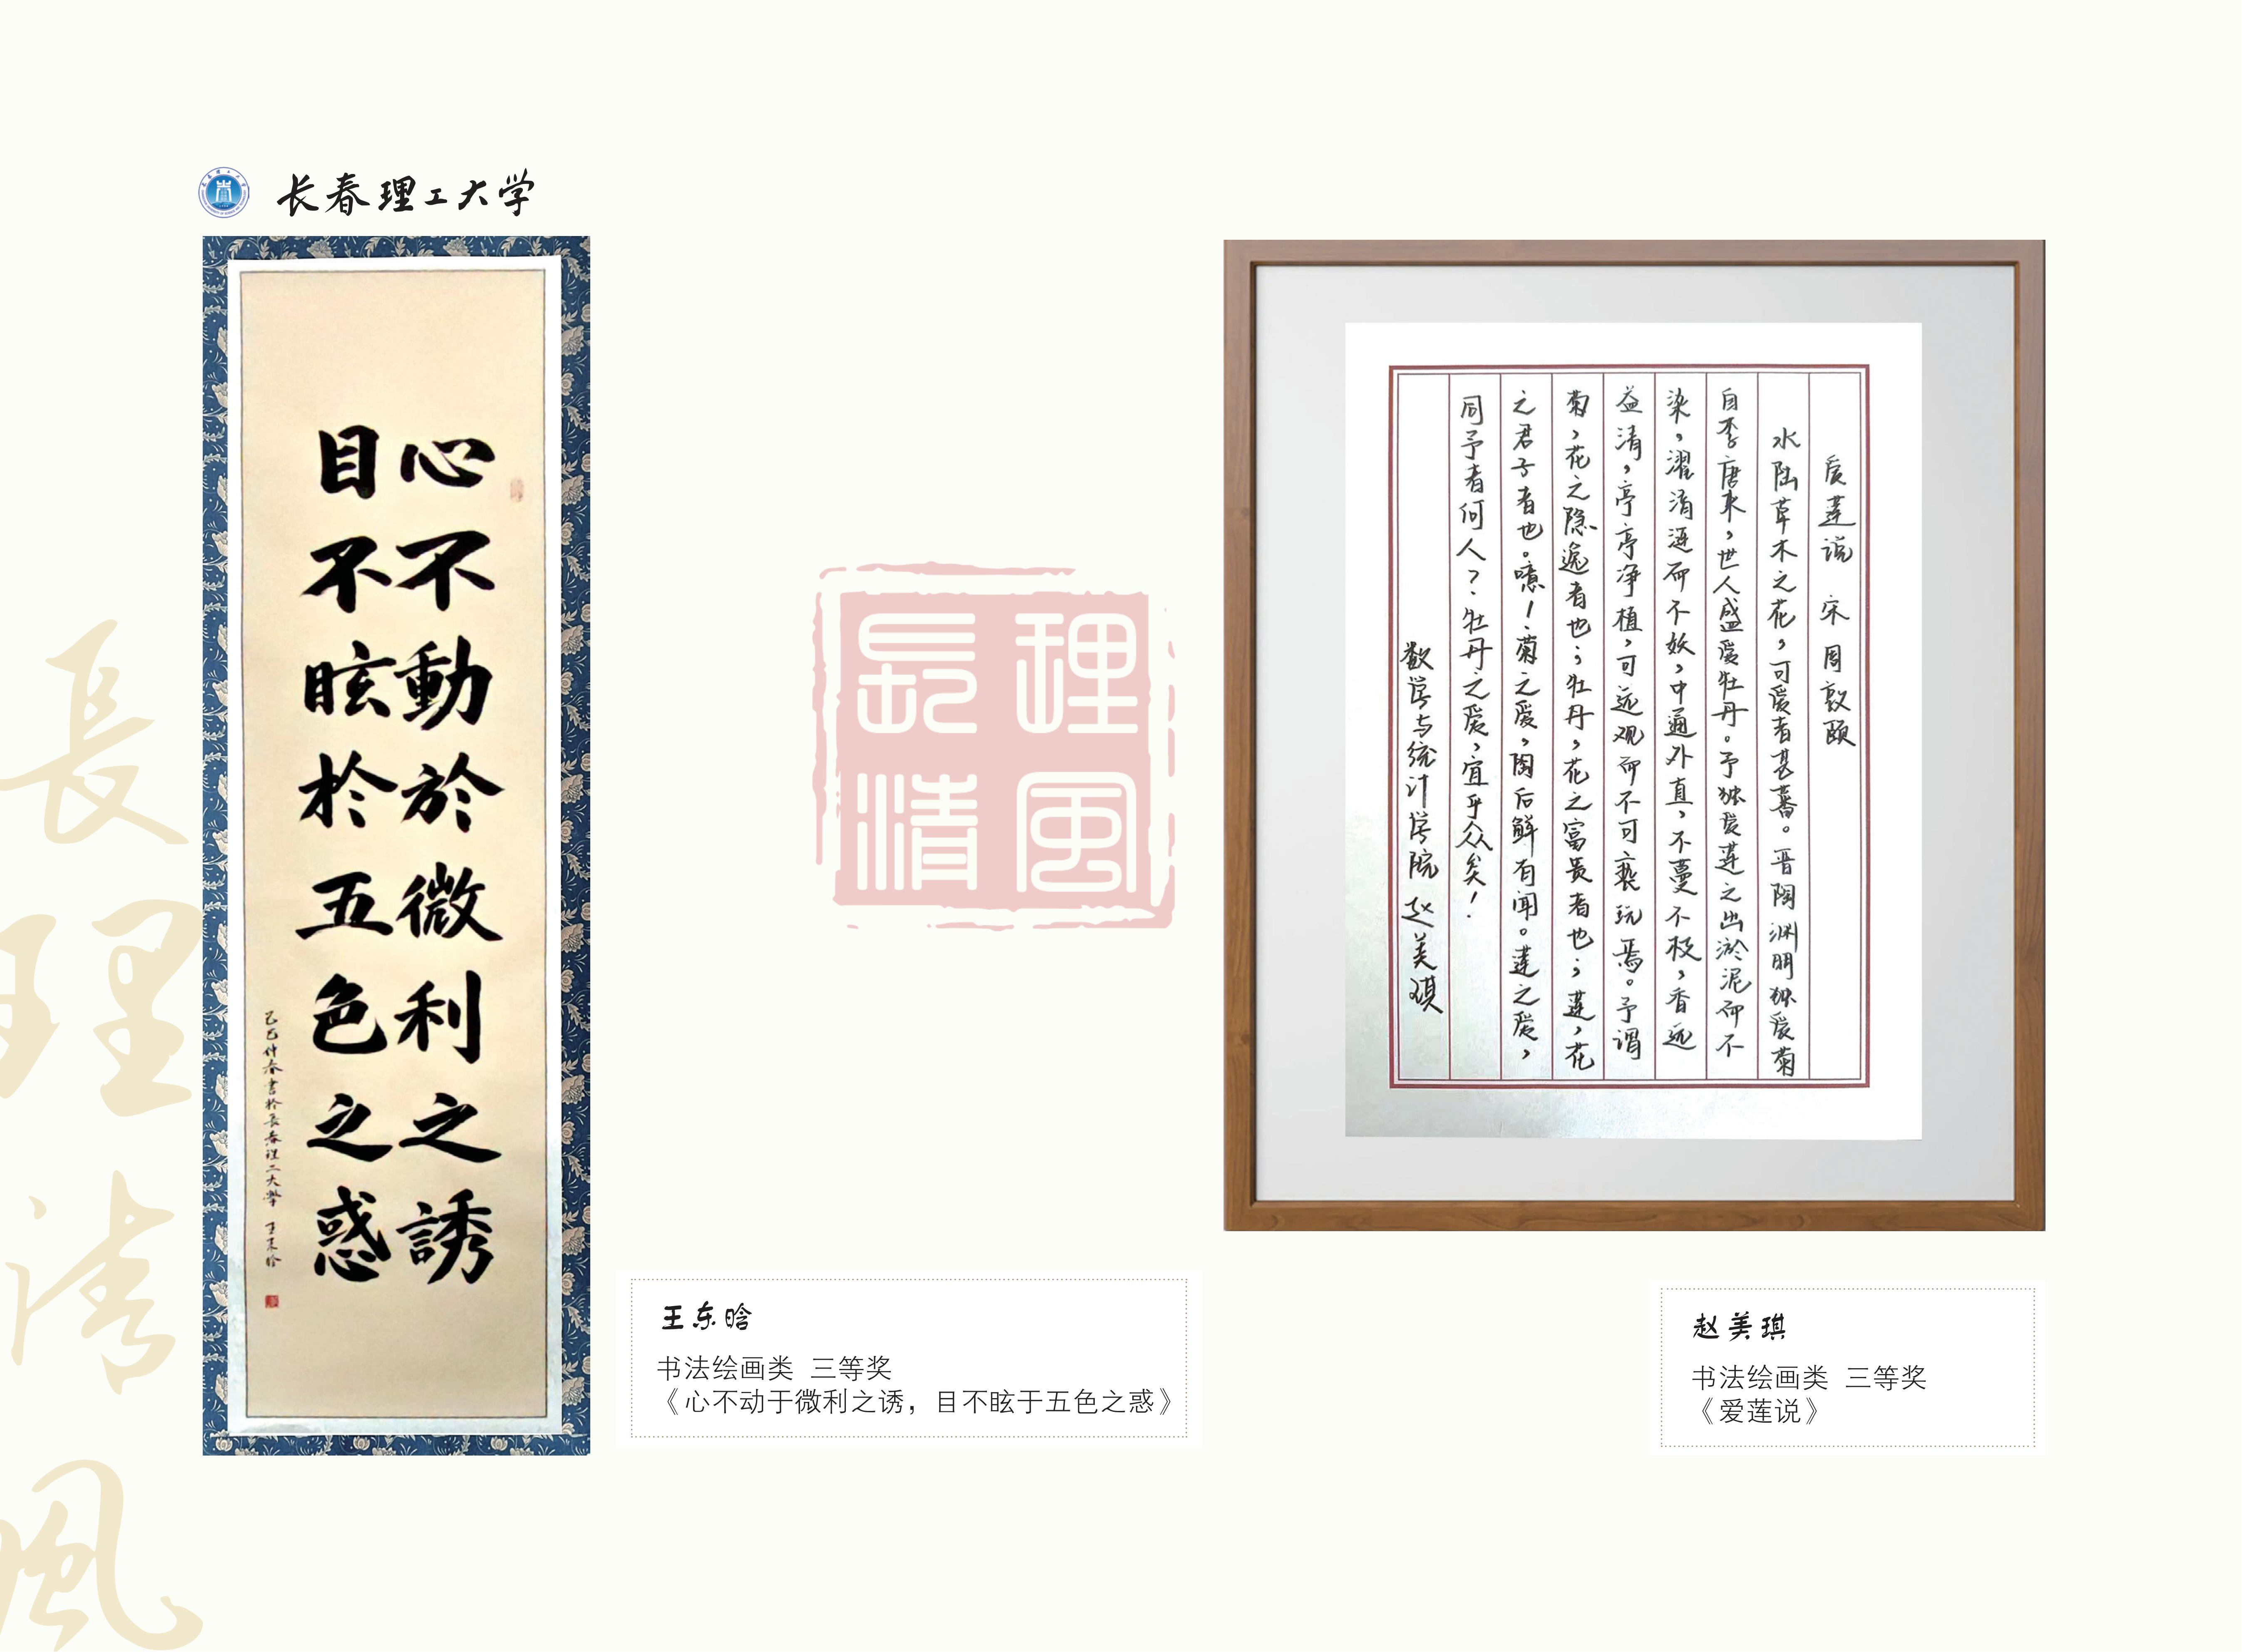 长春理工大学
心不動於微利之誘
目不眩於五色之惑
乙巳仲春書於長春理工大學 王东晗
理風
長清
長理清風
王东晗
书法绘画类 三等奖
《心不动于微利之诱，目不眩于五色之惑》
爱莲说 宋 周敦颐
水陆草木之花，可爱者甚蕃。晋陶渊明独爱菊
自李唐来，世人盛爱牡丹。予独爱莲之出淤泥而不
染，濯清涟而不妖，中通外直，不蔓不枝，香远
益清，亭亭净植，可远观而不可亵玩焉。予谓
菊，花之隐逸者也；牡丹，花之富贵者也；莲，花
之君子者也。噫！菊之爱，陶后鲜有闻。莲之爱，
同予者何人？牡丹之爱，宜乎众矣！
数学与统计学院 赵美琪
赵美琪
书法绘画类 三等奖
《爱莲说》